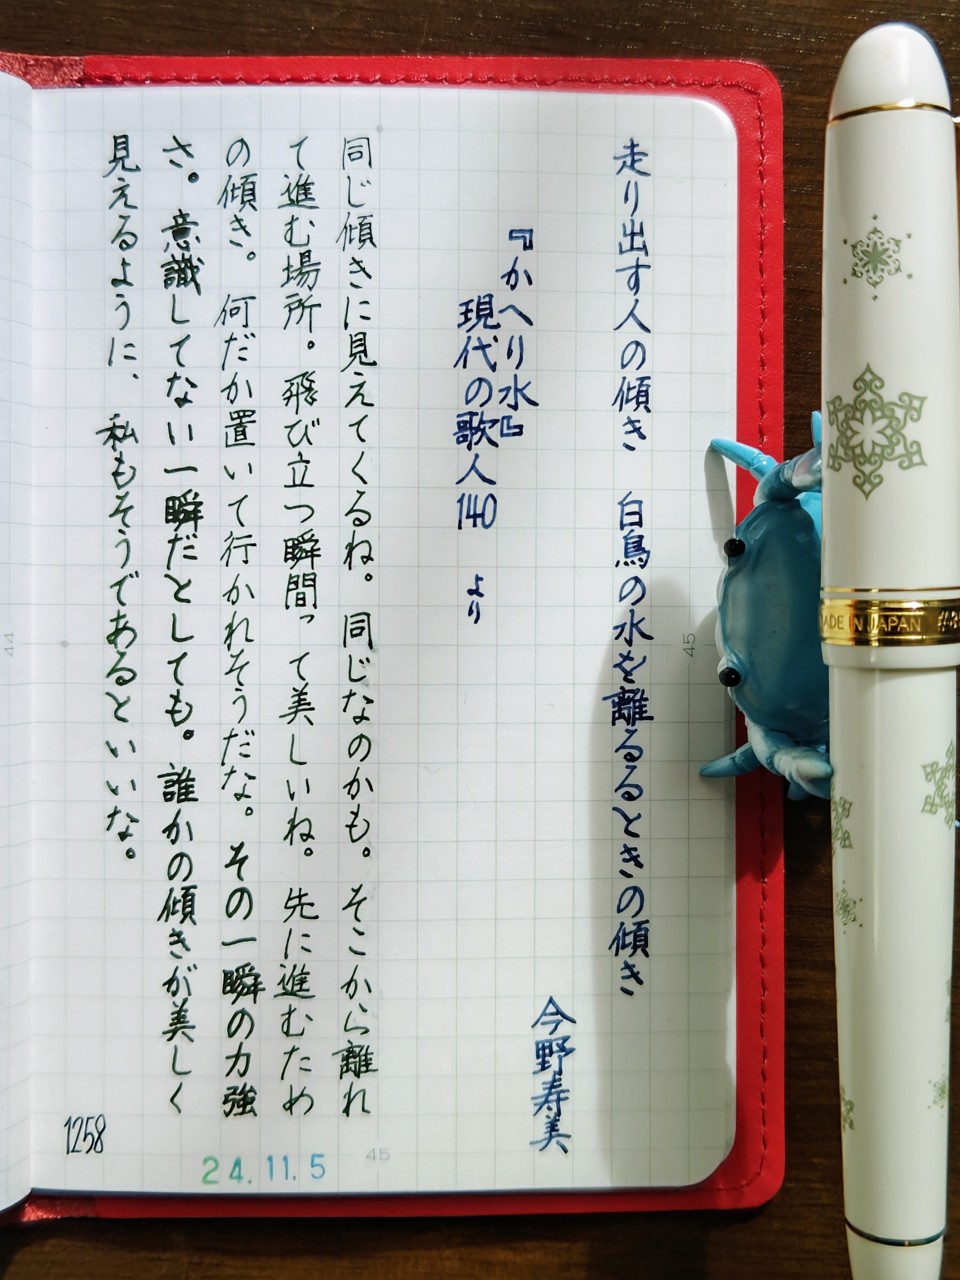 走り出す人の傾き　白鳥の水を離るるときの傾き
今野寿美
『かへり水』
現代の歌人140　より
同じ傾きに見えてくるね。同じなのかも。そこから離れ
て進む場所。飛び立つ瞬間って美しいね。先に進むため
の傾き。何だか置いて行かれそうだな。その一瞬の力強
さ。意識してない一瞬だとしても。誰かの傾きが美しく
見えるように、私もそうであるといいな。
1258
24.11.5
45
45
44
MADE IN JAPAN